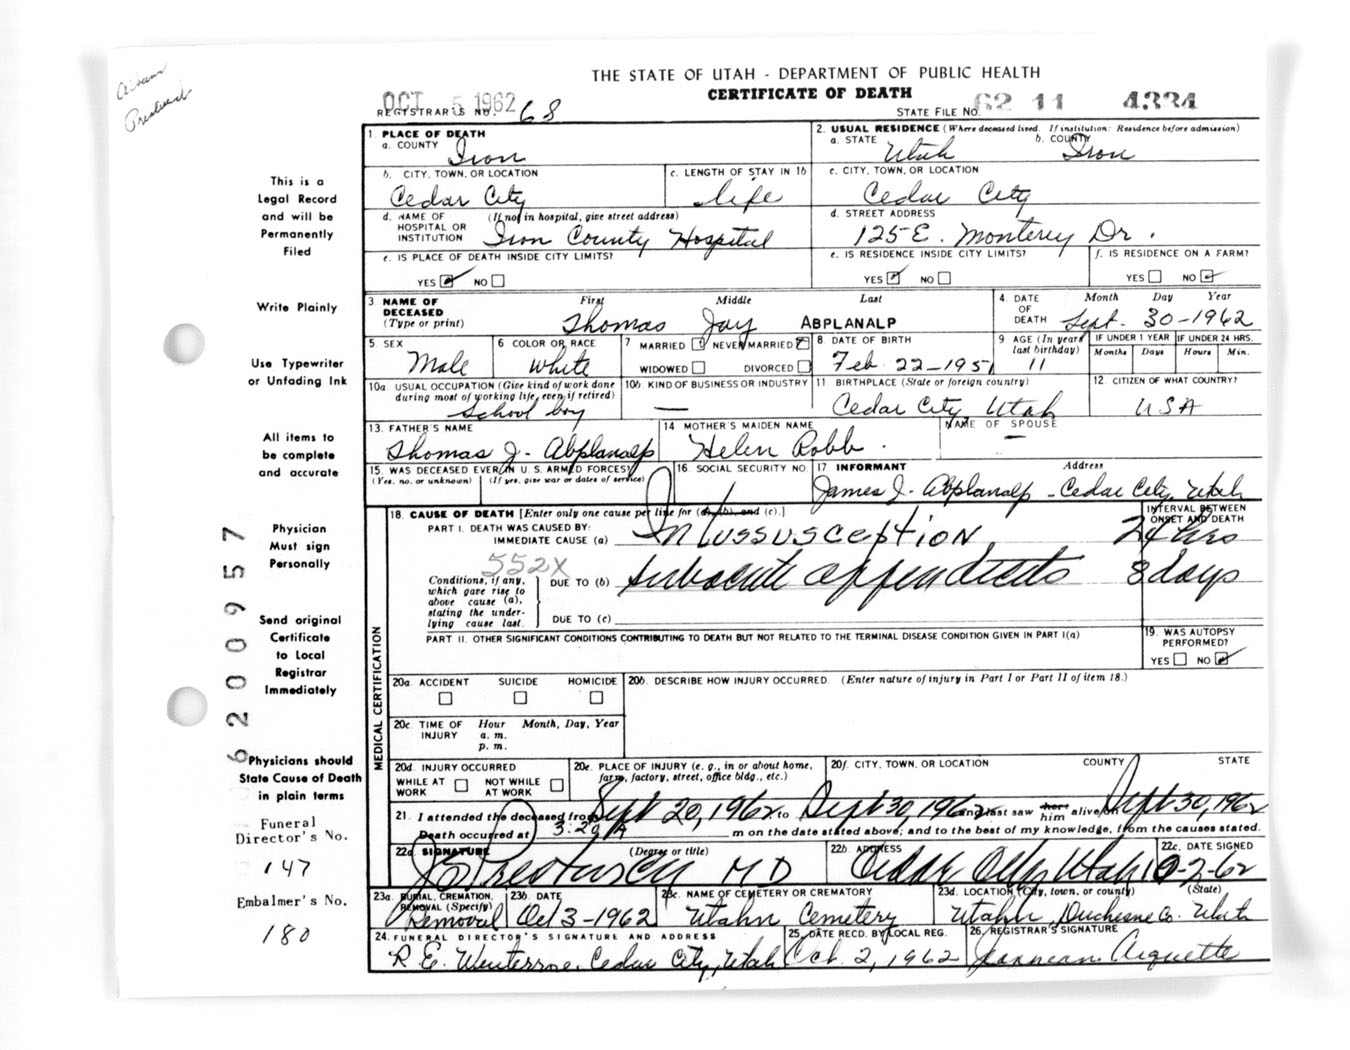 THE STATE OF UTAH - DEPARTMENT OF PUBLIC HEALTH
CERTIFICATE OF DEATH
OCT 5 1962
REGISTRAR'S NO. 68
STATE FILE NO. 62 11 4334
This is a
Legal Record
and will be
Permanently
Filed
Write Plainly
Use Typewriter
or Unfading Ink
All items to
be complete
and accurate
Physician
Must sign
Personally
Send original
Certificate
to Local
Registrar
Immediately
Physicians should
State Cause of Death
in plain terms
Funeral
Director's No.
147
Embalmer's No.
180
6200957
1. PLACE OF DEATH
a. COUNTY Iron
2. USUAL RESIDENCE (Where deceased lived. If institution: Residence before admission)
a. STATE Utah b. COUNTY Iron
b. CITY, TOWN, OR LOCATION Cedar City
c. LENGTH OF STAY IN 1b life
c. CITY, TOWN, OR LOCATION Cedar City
d. NAME OF HOSPITAL OR INSTITUTION (If not in hospital, give street address) Iron County Hospital
d. STREET ADDRESS 125 E. Monterey Dr.
e. IS PLACE OF DEATH INSIDE CITY LIMITS?
YES NO
e. IS RESIDENCE INSIDE CITY LIMITS?
YES NO
f. IS RESIDENCE ON A FARM?
YES NO
3 NAME OF DECEASED (Type or print) First Middle Last
Thomas Jay ABPLANALP
4. DATE OF DEATH Month Day Year
Sept. 30-1962
5 SEX Male
6 COLOR OR RACE White
7 MARRIED NEVER MARRIED
WIDOWED DIVORCED
8 DATE OF BIRTH Feb 22-1951
9 AGE (In years last birthday) 11
IF UNDER 1 YEAR Months Days
IF UNDER 24 HRS. Hours Min.
10a. USUAL OCCUPATION (Give kind of work done during most of working life, even if retired) School boy
10b. KIND OF BUSINESS OR INDUSTRY —
11. BIRTHPLACE (State or foreign country) Cedar City, Utah
12. CITIZEN OF WHAT COUNTRY? USA
13. FATHER'S NAME Thomas J. Abplanalp
14 MOTHER'S MAIDEN NAME Helen Robb.
NAME OF SPOUSE —
15. WAS DECEASED EVER IN U. S. ARMED FORCES?
(Yes, no, or unknown) (If yes, give war or dates of service)
16. SOCIAL SECURITY NO.
17 INFORMANT Address
James J. Abplanalp - Cedar City, Utah
MEDICAL CERTIFICATION
18. CAUSE OF DEATH [Enter only one cause per line for (a), (b), and (c).]
INTERVAL BETWEEN ONSET AND DEATH
PART I. DEATH WAS CAUSED BY:
IMMEDIATE CAUSE (a) Intussusception 24 hrs
552X
Conditions, if any, which gave rise to above cause (a), stating the underlying cause last.
DUE TO (b) subacute appendicitis 8 days
DUE TO (c)
PART II. OTHER SIGNIFICANT CONDITIONS CONTRIBUTING TO DEATH BUT NOT RELATED TO THE TERMINAL DISEASE CONDITION GIVEN IN PART I(a)
19. WAS AUTOPSY PERFORMED?
YES NO
20a. ACCIDENT SUICIDE HOMICIDE
20b. DESCRIBE HOW INJURY OCCURRED. (Enter nature of injury in Part I or Part II of item 18.)
20c. TIME OF INJURY Hour Month, Day, Year
a. m.
p. m.
20d. INJURY OCCURRED
WHILE AT WORK NOT WHILE AT WORK
20e. PLACE OF INJURY (e. g., in or about home, farm, factory, street, office bldg., etc.)
20f. CITY, TOWN, OR LOCATION COUNTY STATE
21. I attended the deceased from Sept 20, 1962 to Sept 30, 1962 and last saw her him alive on Sept 30, 1962
Death occurred at 3:20 A m on the date stated above; and to the best of my knowledge, from the causes stated.
22a. SIGNATURE (Degree or title) MD
22b. ADDRESS Cedar City Utah
22c. DATE SIGNED 10-2-62
23a. BURIAL, CREMATION, REMOVAL (Specify) Removal
23b. DATE Oct 3-1962
23c. NAME OF CEMETERY OR CREMATORY Utahn Cemetery
23d. LOCATION (City, town, or county) (State)
Utahn, Duchesne Co. Utah
24. FUNERAL DIRECTOR'S SIGNATURE AND ADDRESS
R. E. Cedar City, Utah
25. DATE RECD. BY LOCAL REG. Oct. 2, 1962
26. REGISTRAR'S SIGNATURE
Arquette